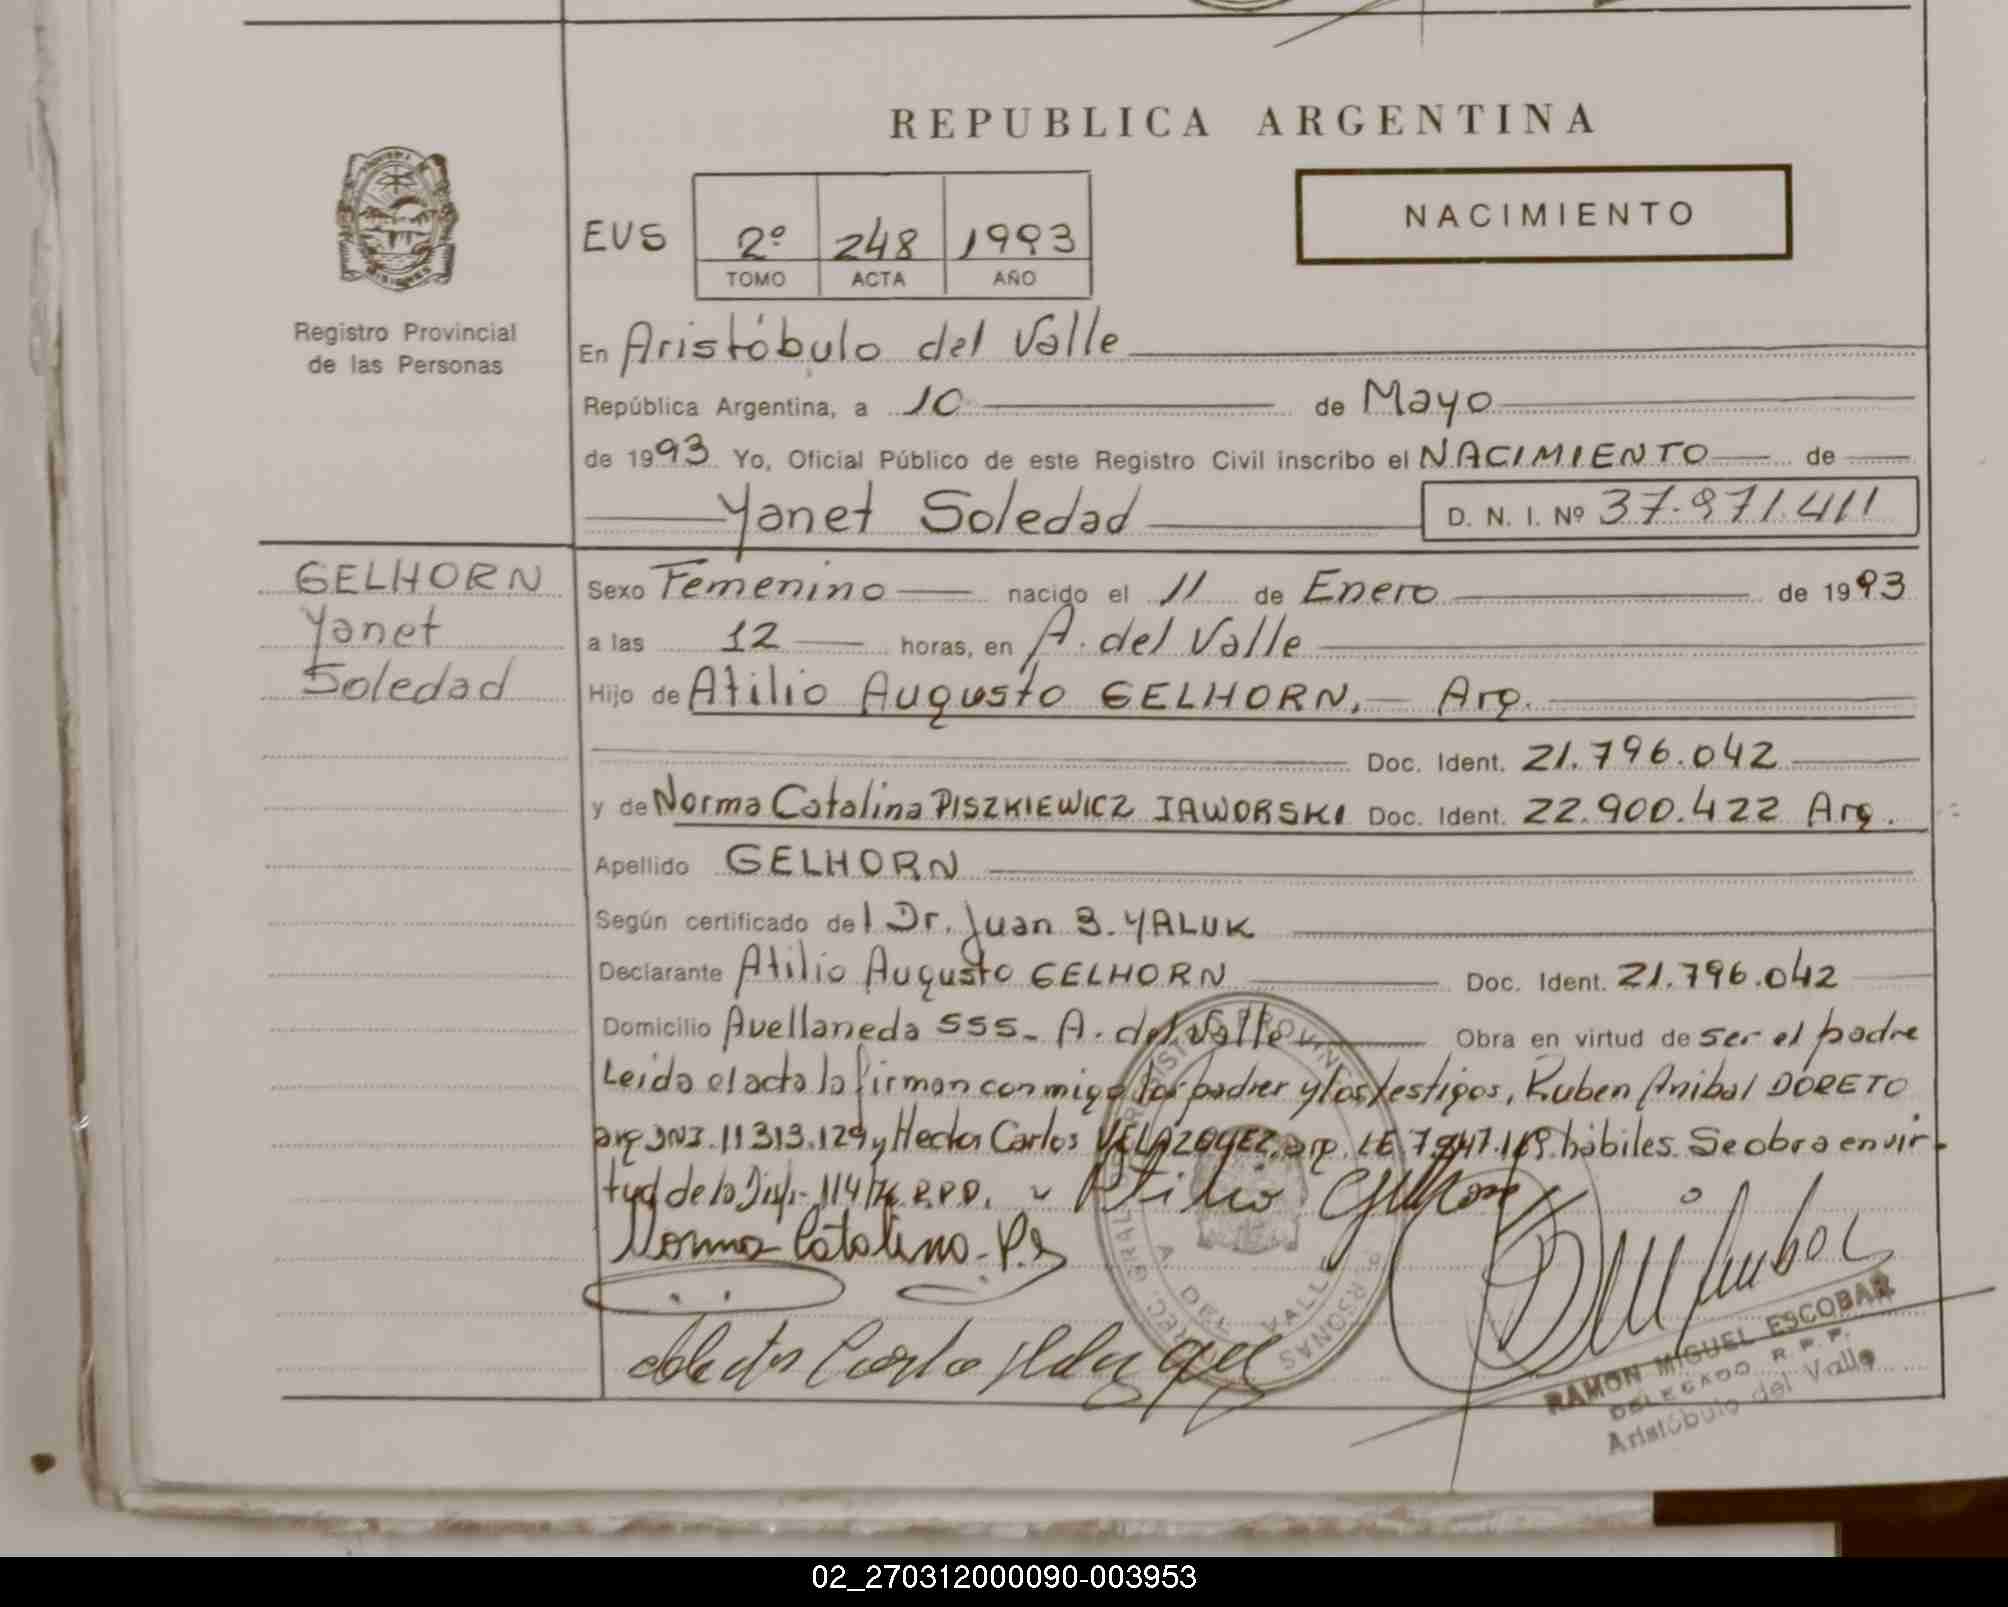 REPUBLICA ARGENTINA
NACIMIENTO
EVS 2º 248 1993
TOMO ACTA AÑO
Registro Provincial
de las Personas
En Aristóbulo del Valle
República Argentina, a 10 de Mayo
de 1993 Yo, Oficial Público de este Registro Civil inscribo el NACIMIENTO de
Yanet Soledad D. N. I. Nº 37.971.411
GELHORN
Yanet
Soledad
Sexo Femenino nacido el 11 de Enero de 1993
a las 12 horas, en A. del Valle
Hijo de Atilio Augusto GELHORN. Arg.
Doc. Ident. 21.796.042
y de Norma Catalina PISZKIEWICZ IAWORSKI Doc. Ident. 22.900.422 Arg.
Apellido GELHORN
Según certificado del Dr. Juan B. YALUK
Declarante Atilio Augusto GELHORN Doc. Ident. 21.796.042
Domicilio Avellaneda 555- A. del Valle Obra en virtud de ser el padre
Leida el acta la firman conmigo los padres y los testigos, Ruben Anibal DORETO
arg DNI. 11313.129 y Hector Carlos VELAZQUEZ, arg. LE hábiles. Se obra en vir-
tud de la Disp. 114/76 R.P.P. Atilio Gelhorn
Norma Catalina P.
Hector Carlos Velazquez
RAMON MIGUEL ESCOBAR
DELEGADO R. P. P.
Aristóbulo del Valle
A. DEL VALLE
02_270312000090-003953